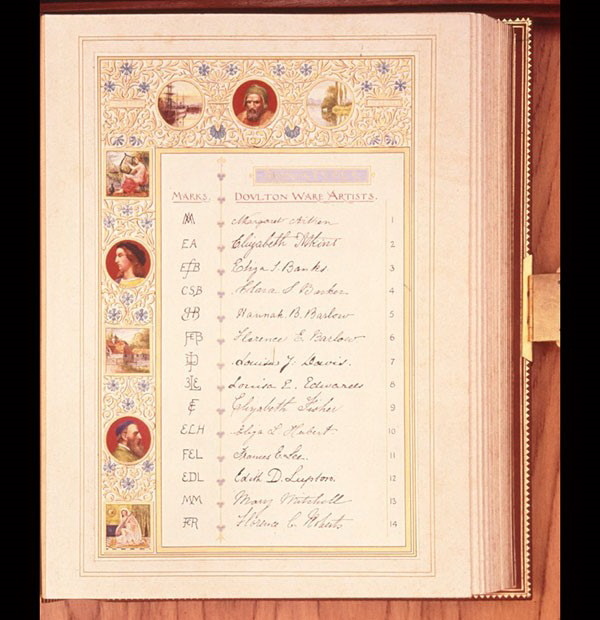 MARKS. DOULTON WARE ARTISTS.
Margaret Aitken 1
EA Elizabeth Atkins 2
EJB Eliza S. Banks 3
CSB Clara S Barker 4
HB Hannah B. Barlow 5
FEB Florence E. Barlow 6
Louisa J. Davis. 7
Louisa E. Edwards 8
EF Elizabeth Fisher 9
ECH Eliza L Hubert 10
FEL Frances E. Lee 11
EDL Edith D. Lupton 12
MM Mary Mitchell 13
FR Florence C. Roberts 14